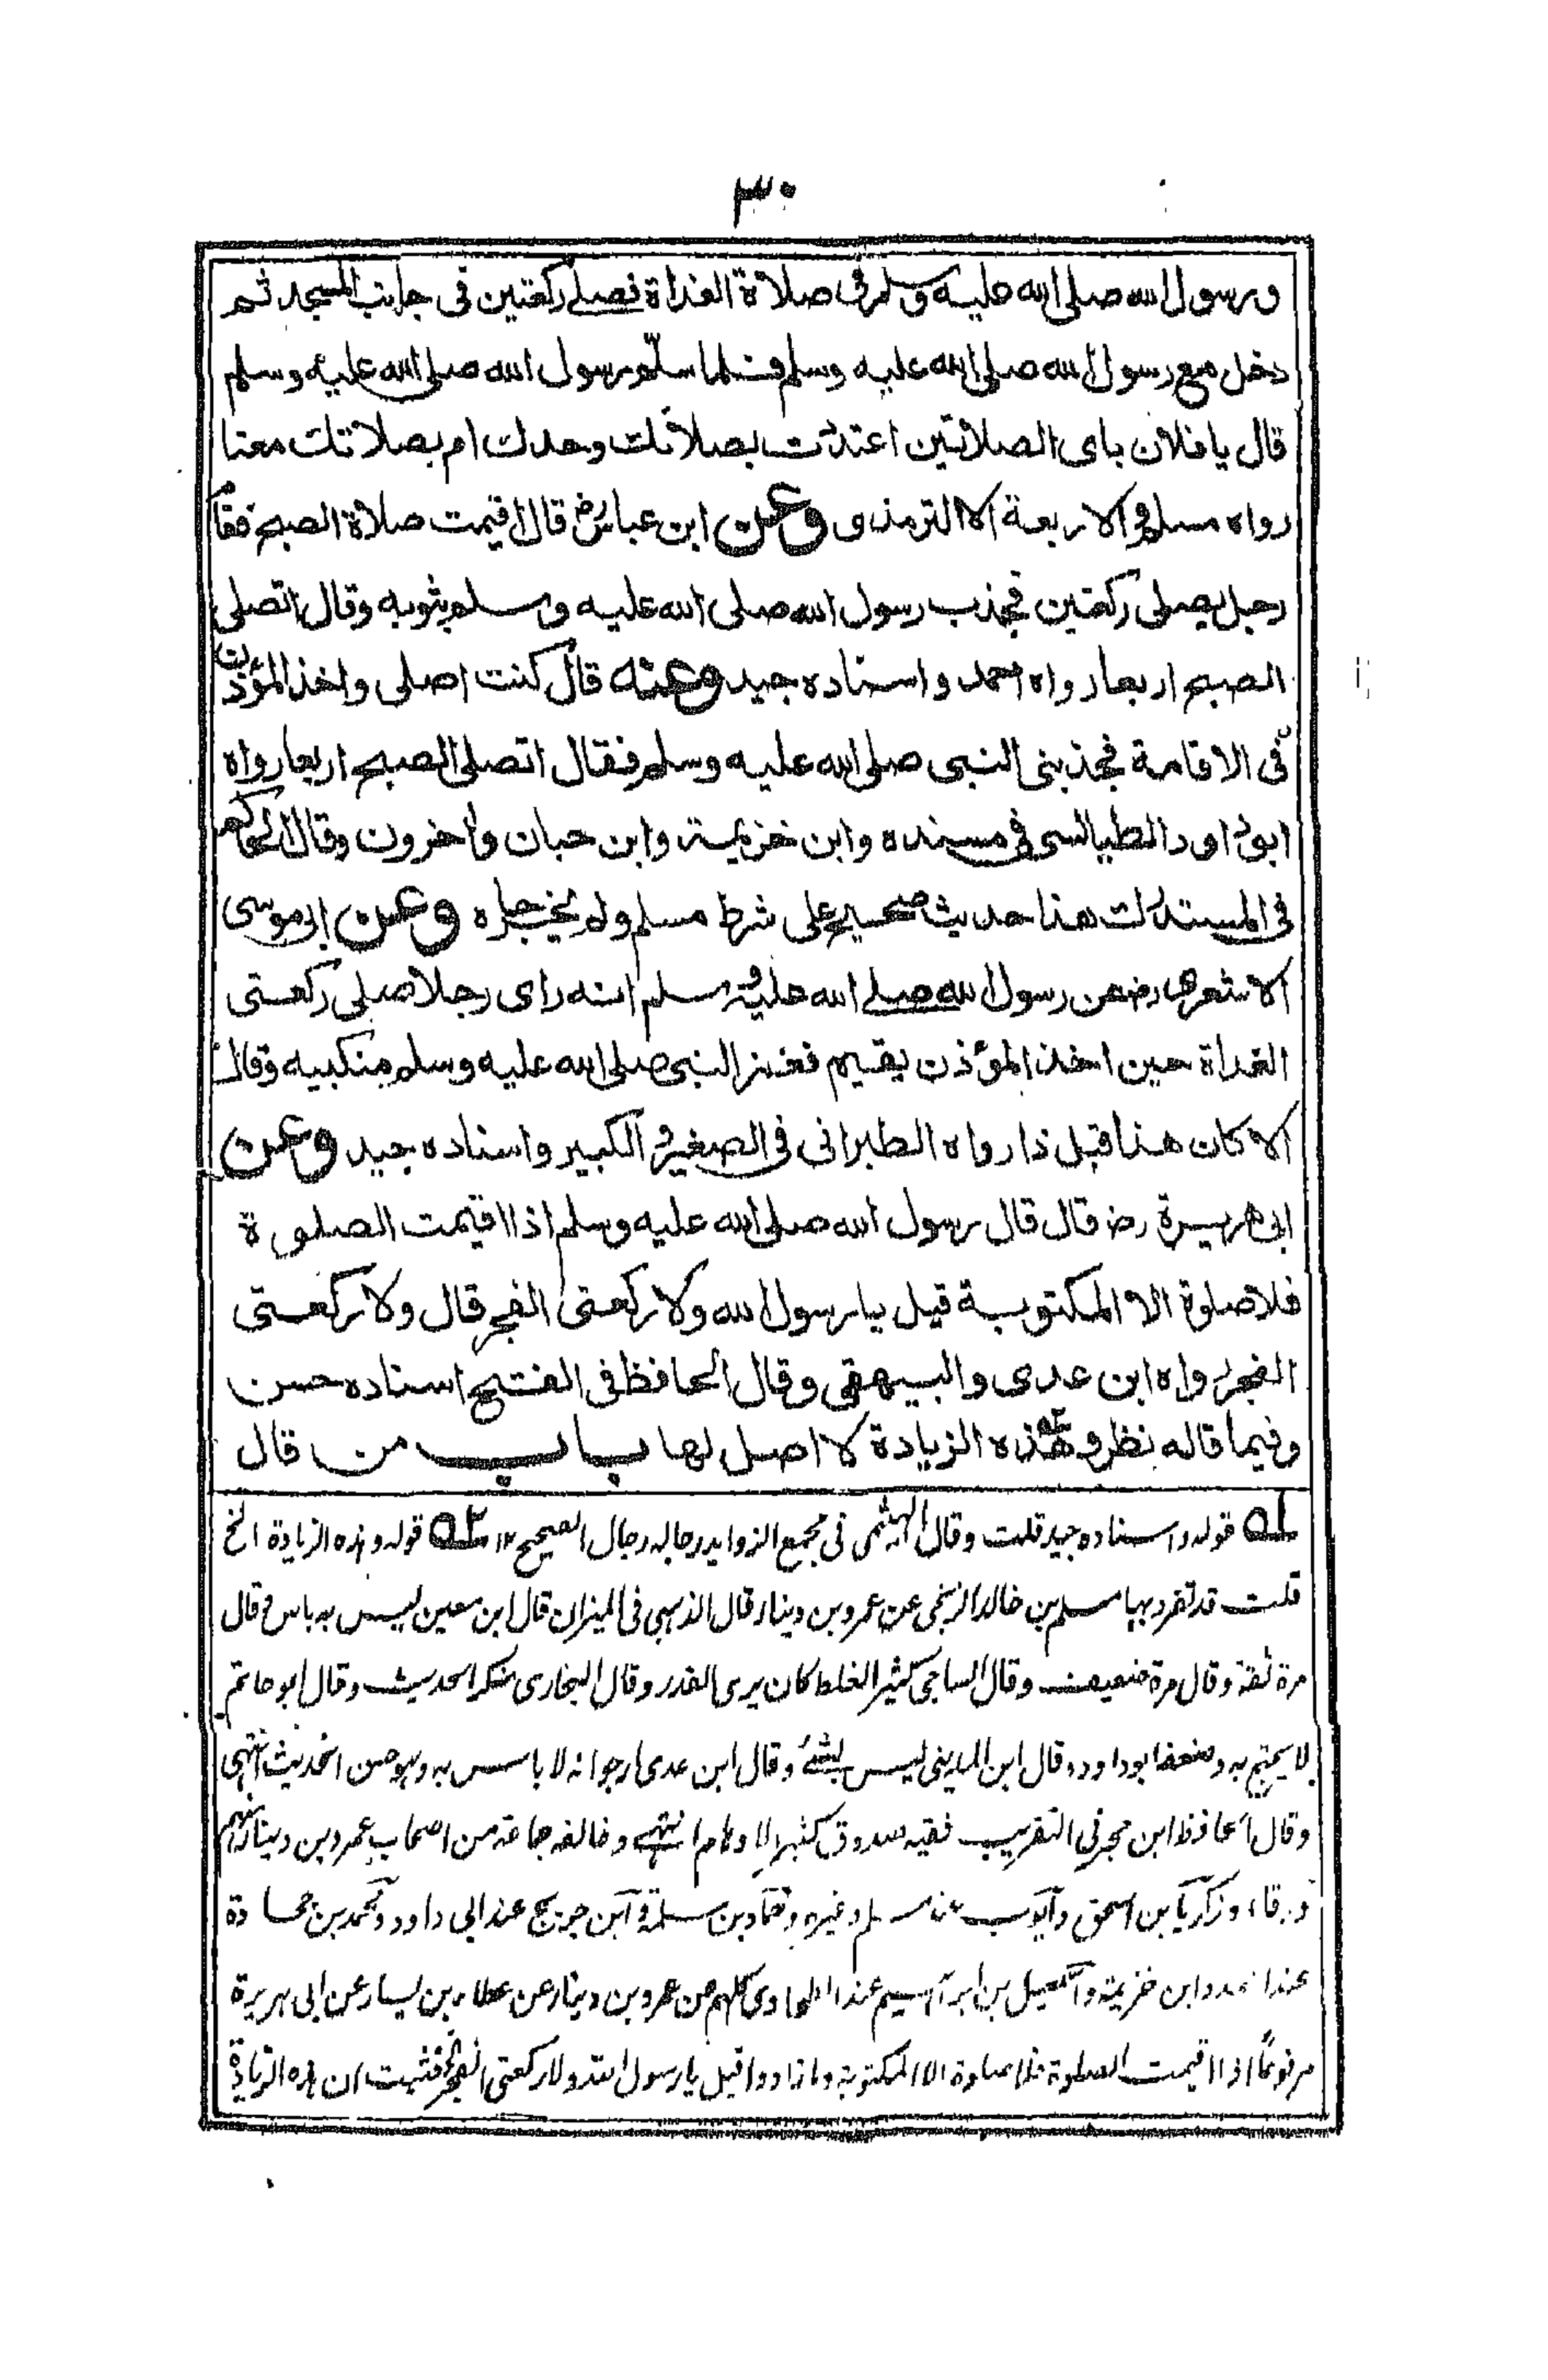 ٣٠
ورسول الله صلى الله عليه وسلم فى صلاة الغداة فصلى ركعتين فى جانب المسجد ثم
دخل مع رسول الله صلى الله عليه وسلم فلما سلّم رسول الله صلى الله عليه وسلم
قال يا فلان باى الصلاتين اعتددت بصلاتك وحدك ام بصلاتك معنا
رواه مسلم والاربعة الا الترمذى وعن ابن عباس رض قال اقيمت صلاة الصبح فقام
رجل يصلى ركعتين فجذب رسول الله صلى الله عليه وسلم بثوبه وقال اتصلى
الصبح اربعا رواه احمد واسناده جيد وعنه قال كنت اصلى واخذ المؤذن
فى الاقامة فجذبنى النبى صلى الله عليه وسلم فقال اتصلى الصبح اربعا رواه
ابو داود الطيالسى فى مسنده وابن خزيمة وابن حبان وآخرون وقال الحاكم
فى المستدرك هذا حديث صحيح على شرط مسلم ولم يخرجاه وعن ابى موسى
الاشعرى رض عن رسول الله صلى الله عليه وسلم انه راى رجلا صلى ركعتى
الغداة حين اخذ المؤذن يقيم فغمز النبى صلى الله عليه وسلم منكبيه وقال
الا كان هذا قبل ذا رواه الطبرانى فى الصغير و الكبير واسناده جيد وعن
ابى هريرة رض قال قال رسول الله صلى الله عليه وسلم اذا اقيمت الصلوة
فلا صلوة الا المكتوبة قيل يا رسول الله ولا ركعتى الفجر قال ولا ركعتى
الفجر رواه ابن عدى والبيهقى وقال الحافظ فى الفتح اسناده حسن
وفيما قاله نظر و٥٢هذه الزيادة لا اصل لها باب من قال
٥١ قوله واسناده جيد قلت وقال الهيثمى فى مجمع الزوايد رجاله رجال الصحيح ١٢ ٥٢ قوله وهذه الزيادة الخ
قلت قد تفرد بها مسلم بن خالد الزنجى عن عمرو بن دينار قال الذهبى فى الميزان قال ابن معين ليس به باس وقال
مرة ثقة وقال مرة ضعيف وقال الساجى كثير الغلط كان يرى القدر وقال البخارى منكر الحديث وقال ابو حاتم
لا يحتج به وضعفه ابو داود وقال ابن المدينى ليس بشئ وقال ابن عدى ارجو انه لا باس به وهو حسن الحديث انتهى
وقال الحافظ ابن حجر فى التقريب فقيه صدوق كثير الاوهام انتهى وخالفه جماعة من اصحاب عمرو بن دينار منهم
ورقاء وزكريا بن اسحق وايوب عند مسلم وغيره وحماد بن سلمة وابن جريج عند ابى داود ومحمد بن جحادة
عند احمد وابن خزيمة واسمعيل بن ابراهيم عند الطحاوى كلهم عن عمرو بن دينار عن عطاء بن يسار عن ابى هريرة
مرفوعًا اذا اقيمت الصلوة فلا صلوة الا المكتوبة وما زادوا قيل يا رسول الله ولا ركعتى الفجر فثبت ان هذه الزيادة